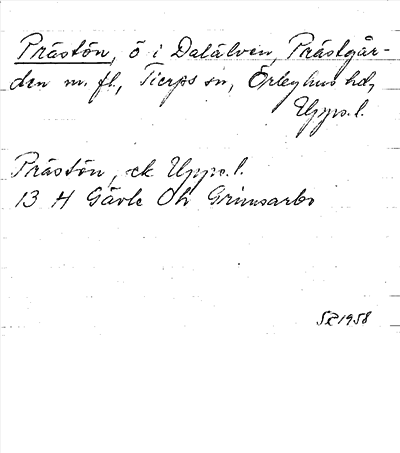 Prästön, ö i Dalälven, Prästgår-
den m. fl., Tierps sn, Örbyhus hd,
Upps. l.
Prästön, ek Upps. l.
13 H Gävle Oh Grimsarbo
SR 1958